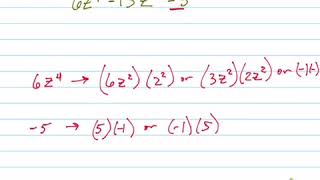 6z⁴ - 13z² - 5
6z⁴ → (6z²)(z²) or (3z²)(2z²) or (-)(-)
-5 → (5)(-1) or (-1)(5)